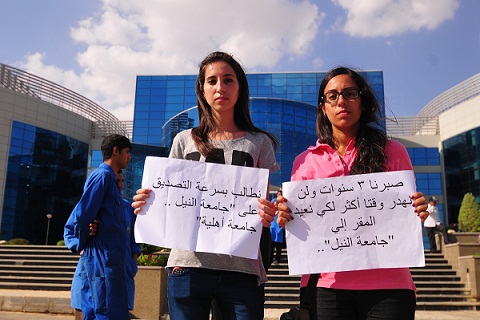 نطالب بسرعة التصديق
على "جامعة النيل ..
جامعة أهلية"
صبرنا ٣ سنوات ولن
نهدر وقتا أكثر لكي نعيد
المقر إلى
"جامعة النيل"..